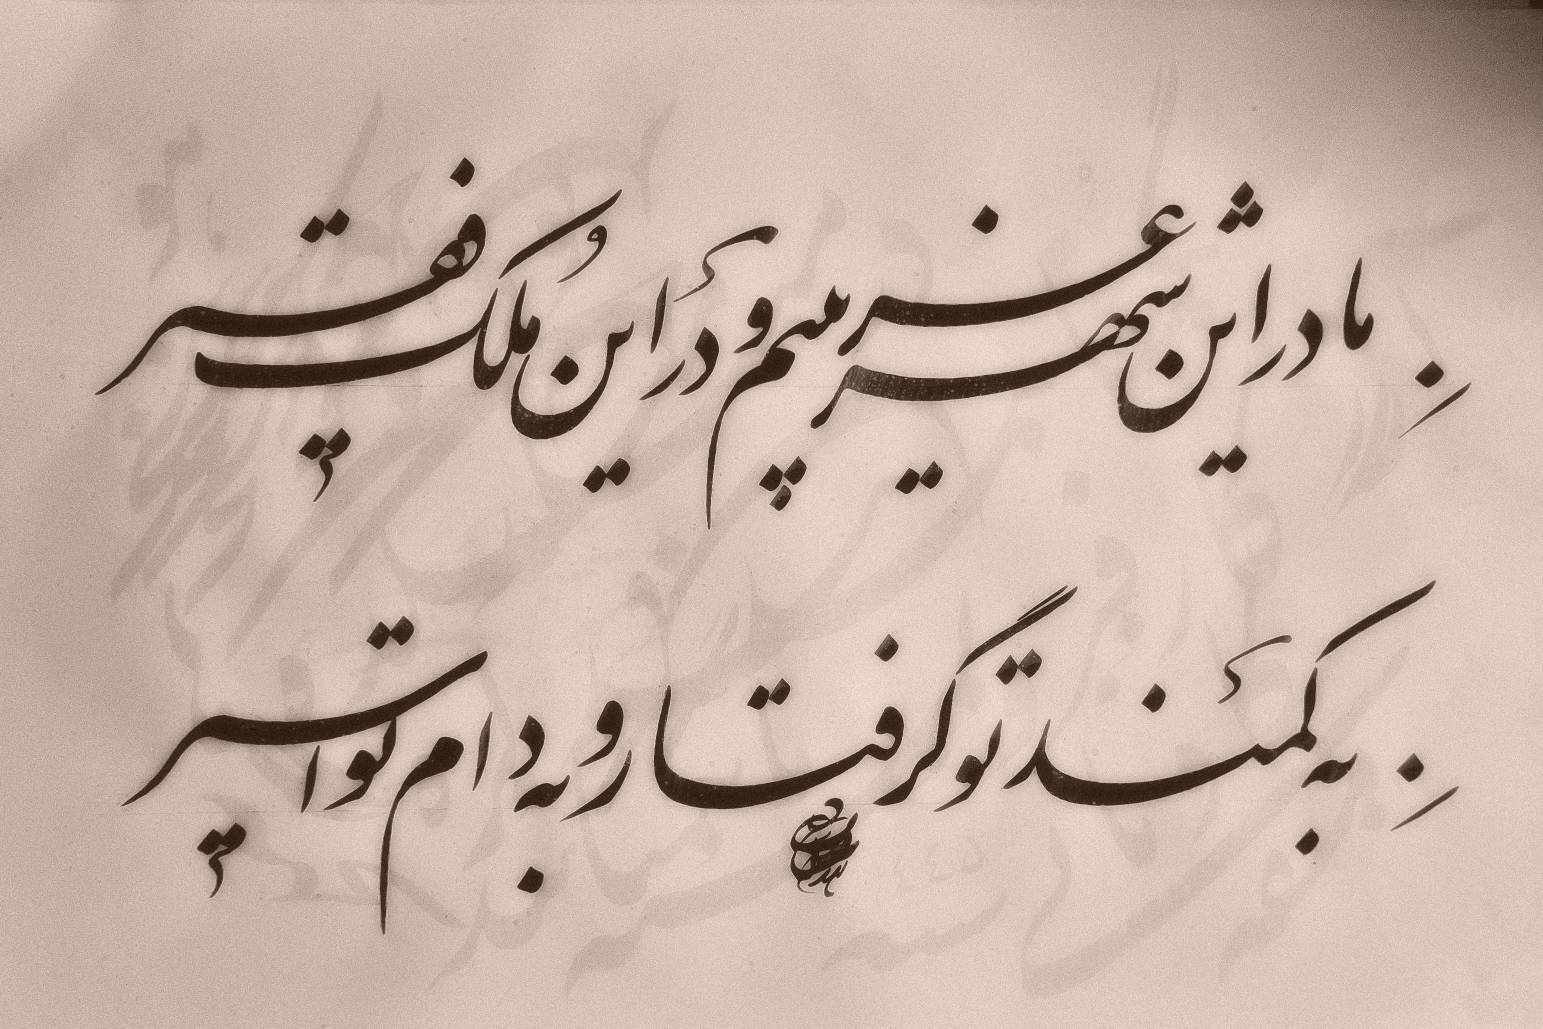 ما در این شهر غریبیم و در این ملک فقیر
به کمند تو گرفتار و به دام تو اسیر